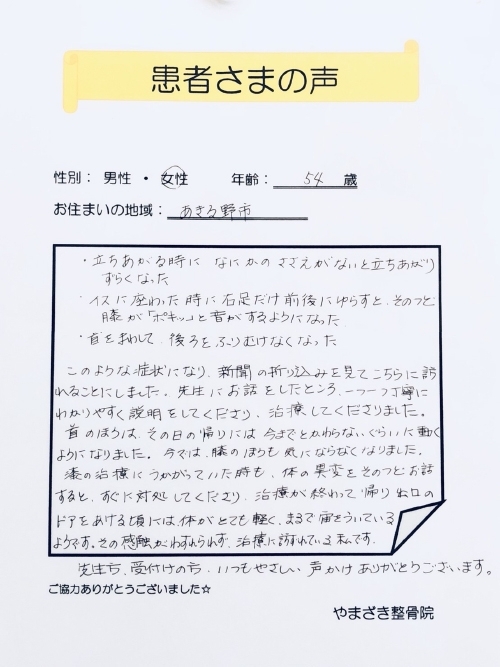 患者さまの声
性別: 男性 ・ 女性 年齢: 54 歳
お住まいの地域: あきる野市
・立ちあがる時に なにかの ささえがないと立ちあがり
ずらくなった
・イスに座わった時に右足だけ前後にゆらすと、そのつど
膝が「ポキッ」と音がするようになった
・首をまわして、後ろをふりむけなくなった
このような症状になり、新聞の折り込みを見てこちらに訪
れることにしました。先生にお話をしたところ、一つ一つ丁寧に
わかりやすく説明をしてくださり、治療してくださりました。
首のほうは、その日の帰りには今までとかわらないくらいに動く
ようになりました。今では、膝のほうも気にならなくなりました。
の治療にうかがっていた時も、体の異変をそのつどお話
すると、すぐに対処してくださり、治療が終わって帰り出口の
ドアをあける頃には、体がとても軽く、まるで宙をういている
ようです。その感触がわすれられず、治療に訪ずれている私です。
先生方、受付けの方、いつもやさしい声かけありがとうございます。
ご協力ありがとうございました☆
やまざき整骨院